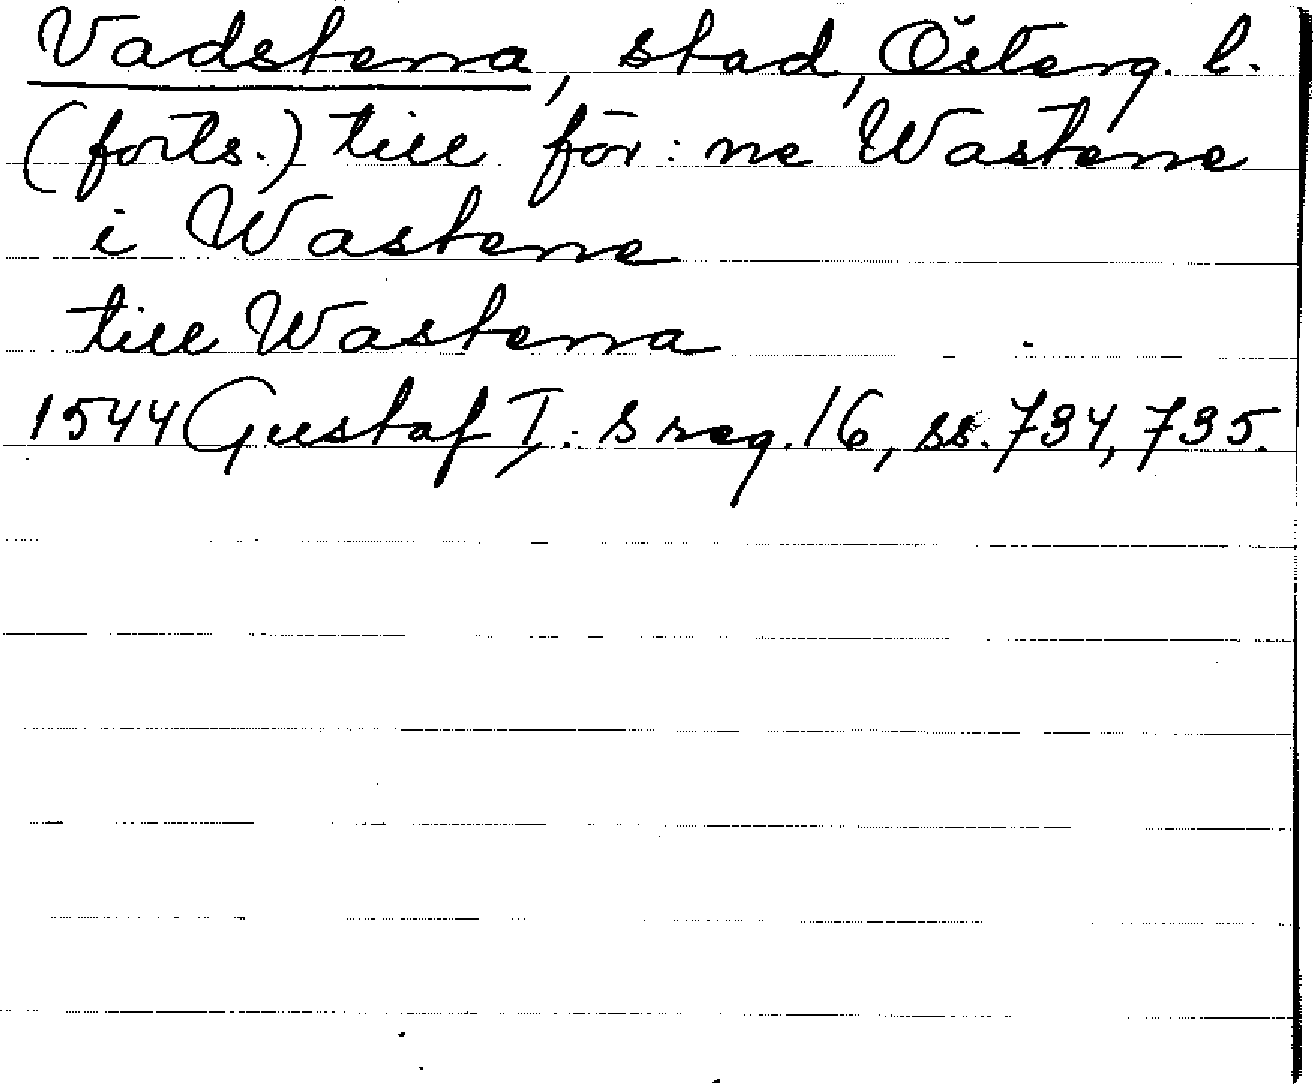 Vadstena, stad, Österg. l.
(forts.) till för:ne Wastene
i Wastene
till Wastena
1544 Gustaf I:s reg. 16, ss. 734, 735.